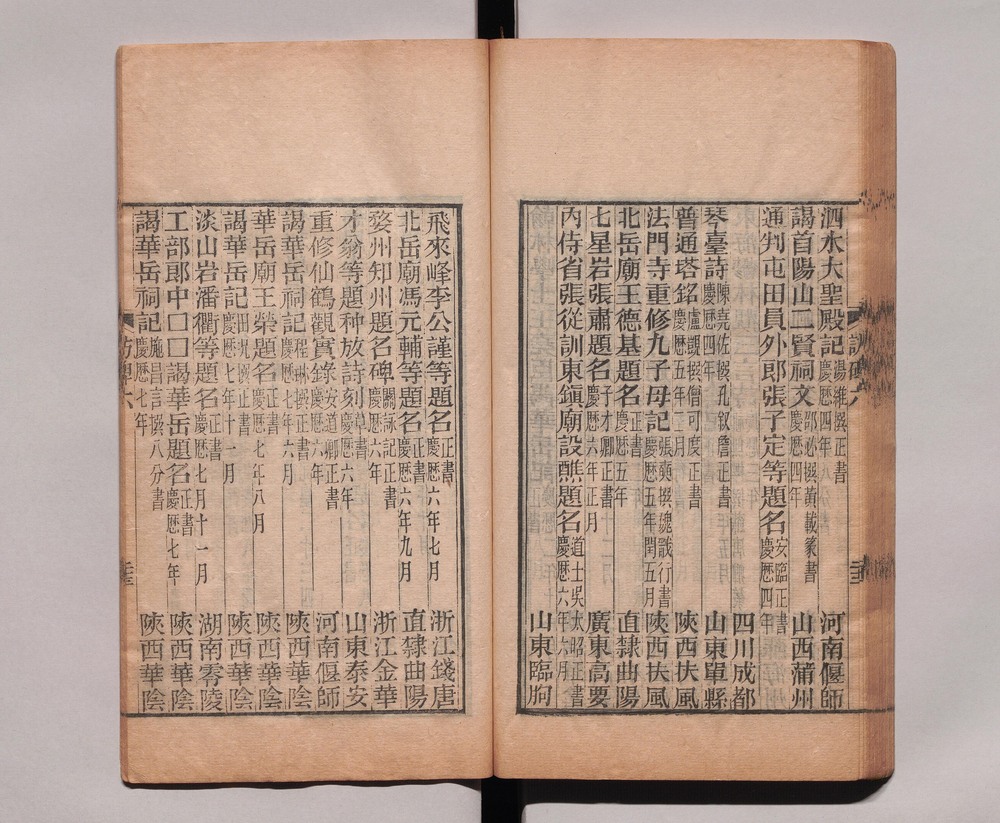 泗水大聖殿記 湯維撰正書 慶曆四年八月 河南偃師
謁首陽山二賢祠文 邵必撰黃載篆書 慶曆四年 山西蒲州
通判屯田員外郎張子定等題名 安臨正書 慶曆四年 四川成都
琴臺詩 陳堯佐撰孔叙詹正書 慶曆四年 山東單縣
普通塔銘 盧覬撰僧可度正書 慶曆五年三月 陝西扶風
法門寺重修九子母記 張奭撰魏戩行書 慶曆五年閏五月 陝西扶風
北岳廟王德基題名 正書 慶曆五年 直隸曲陽
七星岩張肅題名 子才卿正書 慶曆六年正月 廣東高要
內侍省張從訓東鎮廟設醮題名 道士吳太昭正書 慶曆六年六月 山東臨朐
飛來峰李公謹等題名 正書 慶曆六年七月 浙江錢唐
北岳廟馮元輔等題名 正書 慶曆六年九月 直隸曲陽
婺州知州題名碑 關詠記正書 慶曆六年 浙江金華
才翁等題种放詩刻 草書 慶曆六年 山東泰安
重修仙鶴觀實錄 安道卿正書 慶曆六年 河南偃師
謁華岳祠記 程琳撰正書 慶曆七年六月 陝西華陰
華岳廟王榮題名 正書 慶曆七年八月 陝西華陰
謁華岳記 田況撰正書 慶曆七年十一月 陝西華陰
淡山岩潘衢等題名 正書 慶曆七月十一月 湖南零陵
工部郎中□□謁華岳題名 正書 慶曆七年 陝西華陰
謁華岳祠記 施昌言撰八分書 慶曆七年 陝西華陰
訪碑六